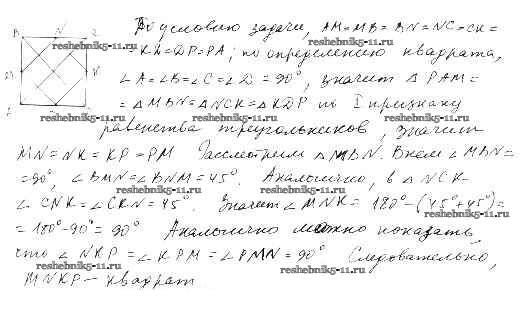 По условию задачи, AM=MB=BN=NC=CK=
B N C
=KD=DP=PA; по определению квадрата,
M K
∠A=∠B=∠C=∠D=90°, значит △PAM=
A
=△MBN=△NCK=△KDP по I признаку
равенства треугольников, значит
MN=NK=KP=PM Рассмотрим △MBN. В нем ∠MBN=
=90°, ∠BMN=∠BNM=45°. Аналогично, в △NCK-
∠CNK=∠CKN=45°. Значит ∠MNK=180°-(45°+45°)=
=180°-90°=90° Аналогично можно показать
что ∠NKP=∠KPM=∠PMN=90° Следовательно,
MNKP – квадрат
reshebnik5-11.ru
reshebnik5-11.ru
reshebnik5-11.ru
reshebnik5-11.ru
reshebnik5-11.ru
reshebnik5-11.ru
reshebnik5-11.ru
reshebnik5-11.ru